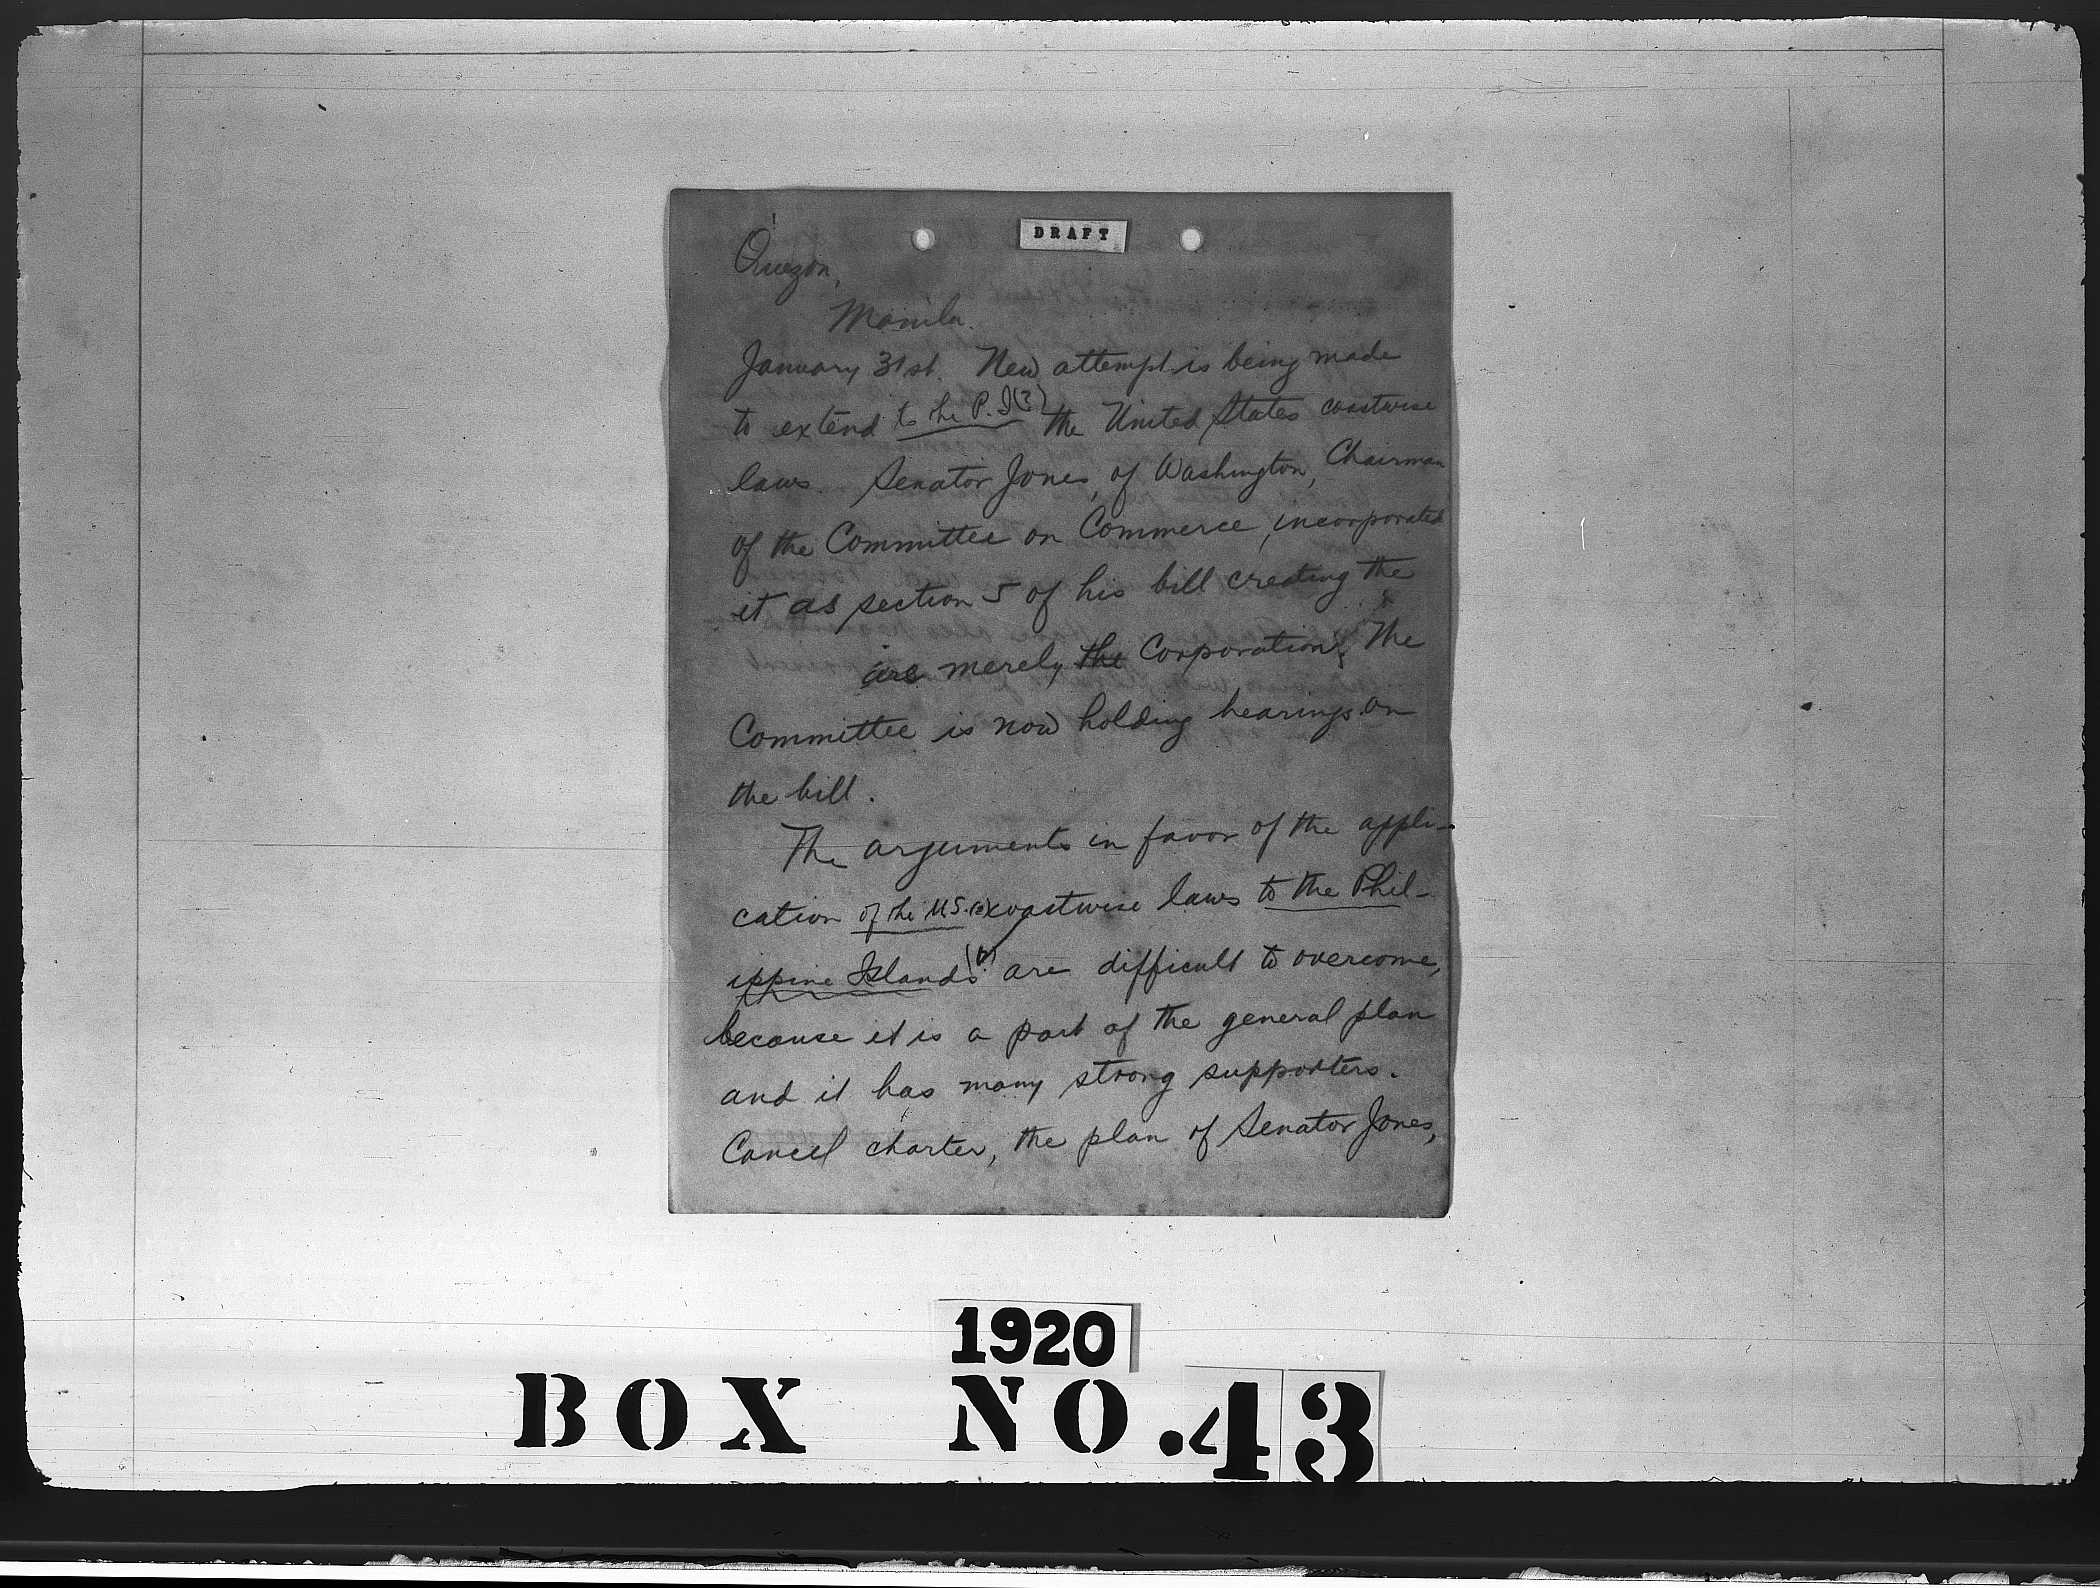 DRAFT
Quezon,
Manila.
January 31st. New attempt is being made
to extend to the P.I(?) the United States coastwise
laws. Senator Jones, of Washington, Chairman
of the Committee on Commerce, incorporated
it as section 5 of his bill creating the
are merely the Corporation. The
Committee is now holding hearings on
the bill.
The arguments in favor of the appli-
cation of the U.S. (?) coastwise laws to the Phil-
ippine Islands (?) are difficult to overcome,
because it is a part of the general plan
and it has many strong supporters.
Cancel charter, the plan of Senator Jones,
1920
BOX NO. 43